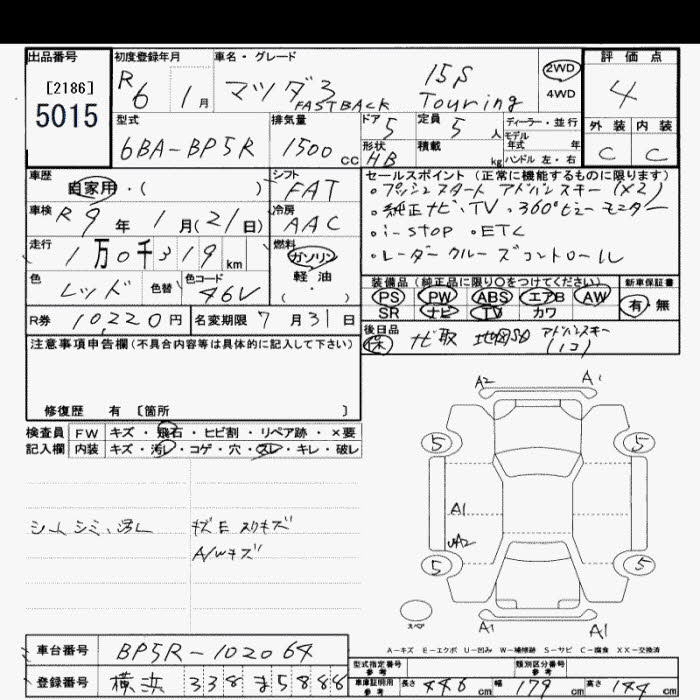 出品番号
[2186]
5015
初度登録年月
R6 1月
車名・グレード
マツダ3 15S
FASTBACK Touring
2WD
4WD
評価点
4
外装 内装
C C
型式
6BA-BP5R
排気量
1500 cc
ドア 5
定員 5 人
形状 HB
積載 kg
ディーラー・並行
モデル年式 年
ハンドル 左・右
車歴
自家用・( )
シフト
FAT
車検 R9年 1月(21日)
冷房
AAC
走行
1万0千319 km
燃料
ガソリン
軽油
・( )
色
レッド
色替
色コード
46V
R券 10,220円 名変期限 7月31日
セールスポイント (正常に機能するものに限ります)
・プッシュスタート アドバンスキー(×2)
・純正ナビ・TV ・360°ビューモニター
・i-stop ・ETC
・レーダークルーズコントロール
装備品(純正品に限り○をつけてください)
PS PW ABS エアB AW
SR ナビ TV カワ
新車保証書
有・無
後日品
保 ナビ取 地図SD アドバンスキー(1コ)
注意事項申告欄(不具合内容等は具体的に記入して下さい)
修復歴 有 〔箇所 〕
検査員
記入欄
FW キズ・飛石・ヒビ割・リペア跡・×要
内装 キズ・汚レ・コゲ・穴・スレ・キレ・破レ
シート シミ、汚レ
キズE スリキズ
A/Wキズ
A2 A1
5 5
A1
A2
5 5
スペア
A1 A1
A-キズ E-エクボ U-凹み W-補修跡 S-サビ C-腐食 XX-交換済
車台番号 BP5R-102064
登録番号 横浜 338 ま 5888
型式指定番号 参考
類別区分番号 参考
車庫証明用 参考
長さ 446 cm 幅 179 cm 高さ 144 cm